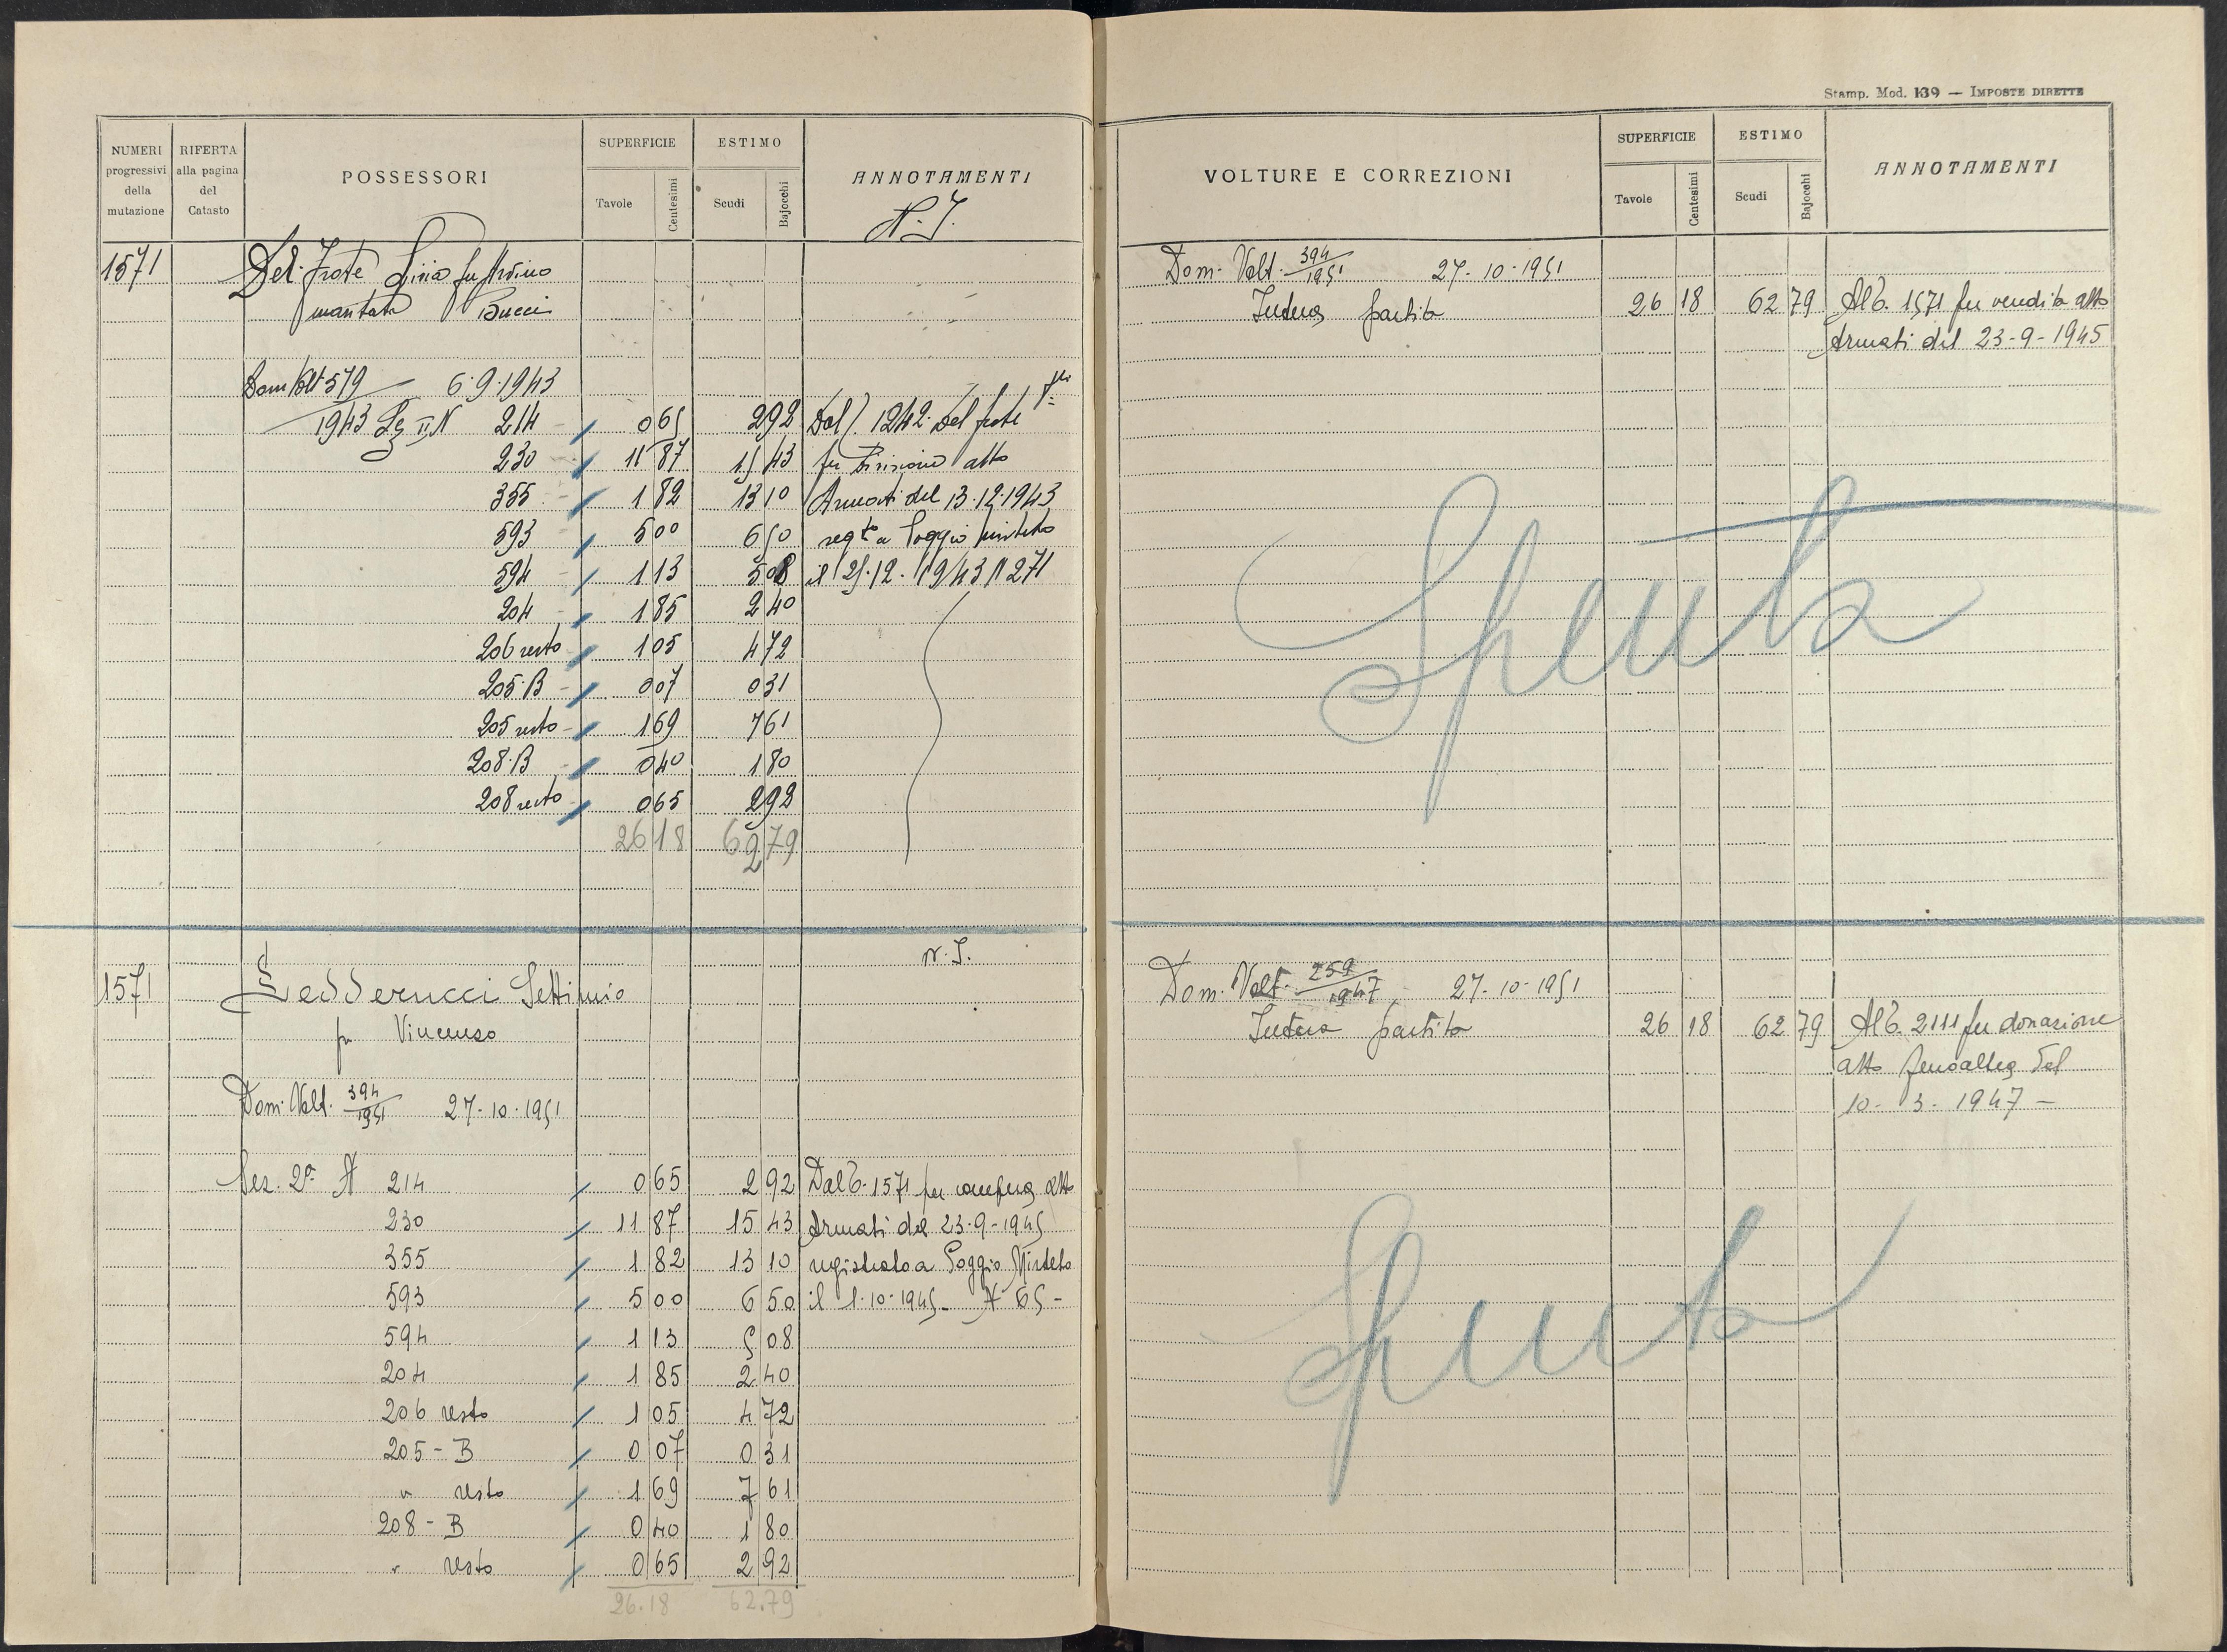 Stamp. Mod. 139 — IMPOSTE DIRETTE
NUMERI progressivi della mutazione
RIFERTA alla pagina del Catasto
POSSESSORI
SUPERFICIE
Tavole
Centesimi
ESTIMO
Scudi
Bajocchi
ANNOTAMENTI
N. I.
1571 Del Frate
maritata Bucci
Dom Volt 579 6.9.1943
1943 N 214 0 65 2 92 Dal 1242 Del Frate
230 11 87 15 43 per Divisione atto
355 1 82 13 10 Armati del 13.12.1943
593 5 00 6 50 regto a Poggio Mirteto
594 1 13 5 08 il 25.12.1943 N 271
204 1 85 2 40
206 resto 1 05 4 72
205.B 0 07 0 31
205 resto 1 69 7 61
208.B 0 40 1 80
208 resto 0 65 2 92
26 18 62 79
N. I.
1571 Settimio
fu Vincenzo
Dom. Volt. 394/1951 27-10-1951
Sez. 2ª N 214 0 65 2 92 Dal 1571 per compera atto
230 11 87 15 43 Armati del 23-9-1945
355 1 82 13 10 registrato a Poggio Mirteto
593 5 00 6 50 il 1-10-1945 N 65 -
594 1 13 5 08
204 1 85 2 40
206 resto 1 05 4 72
205 - B 0 07 0 31
" resto 1 69 7 61
208 - B 0 40 1 80
" resto 0 65 2 92
26.18 62.79
VOLTURE E CORREZIONI
SUPERFICIE
Tavole
Centesimi
ESTIMO
Scudi
Bajocchi
ANNOTAMENTI
Dom. Volt. 394/1951 27-10-1951
Intera partita 26 18 62 79 Al 1571 per vendita atto
Armati del 23-9-1945
Spenta
Dom. Volt. 259/1947 27-10-1951
Intera partita 26 18 62 79 Al 2111 per donazione
atto Fenoaltea del
10-3-1947 -
Spenta